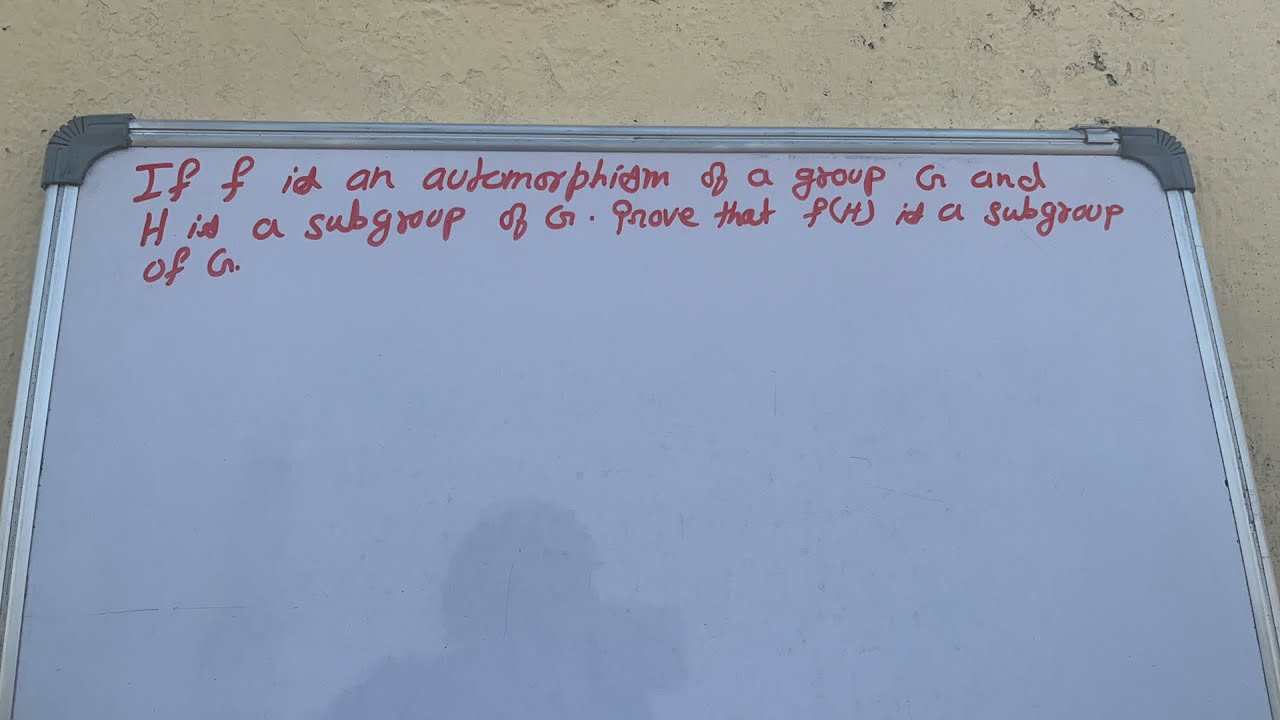 If f is an automorphism of a group G and
H is a subgroup of G. Prove that f(H) is a subgroup
of G.